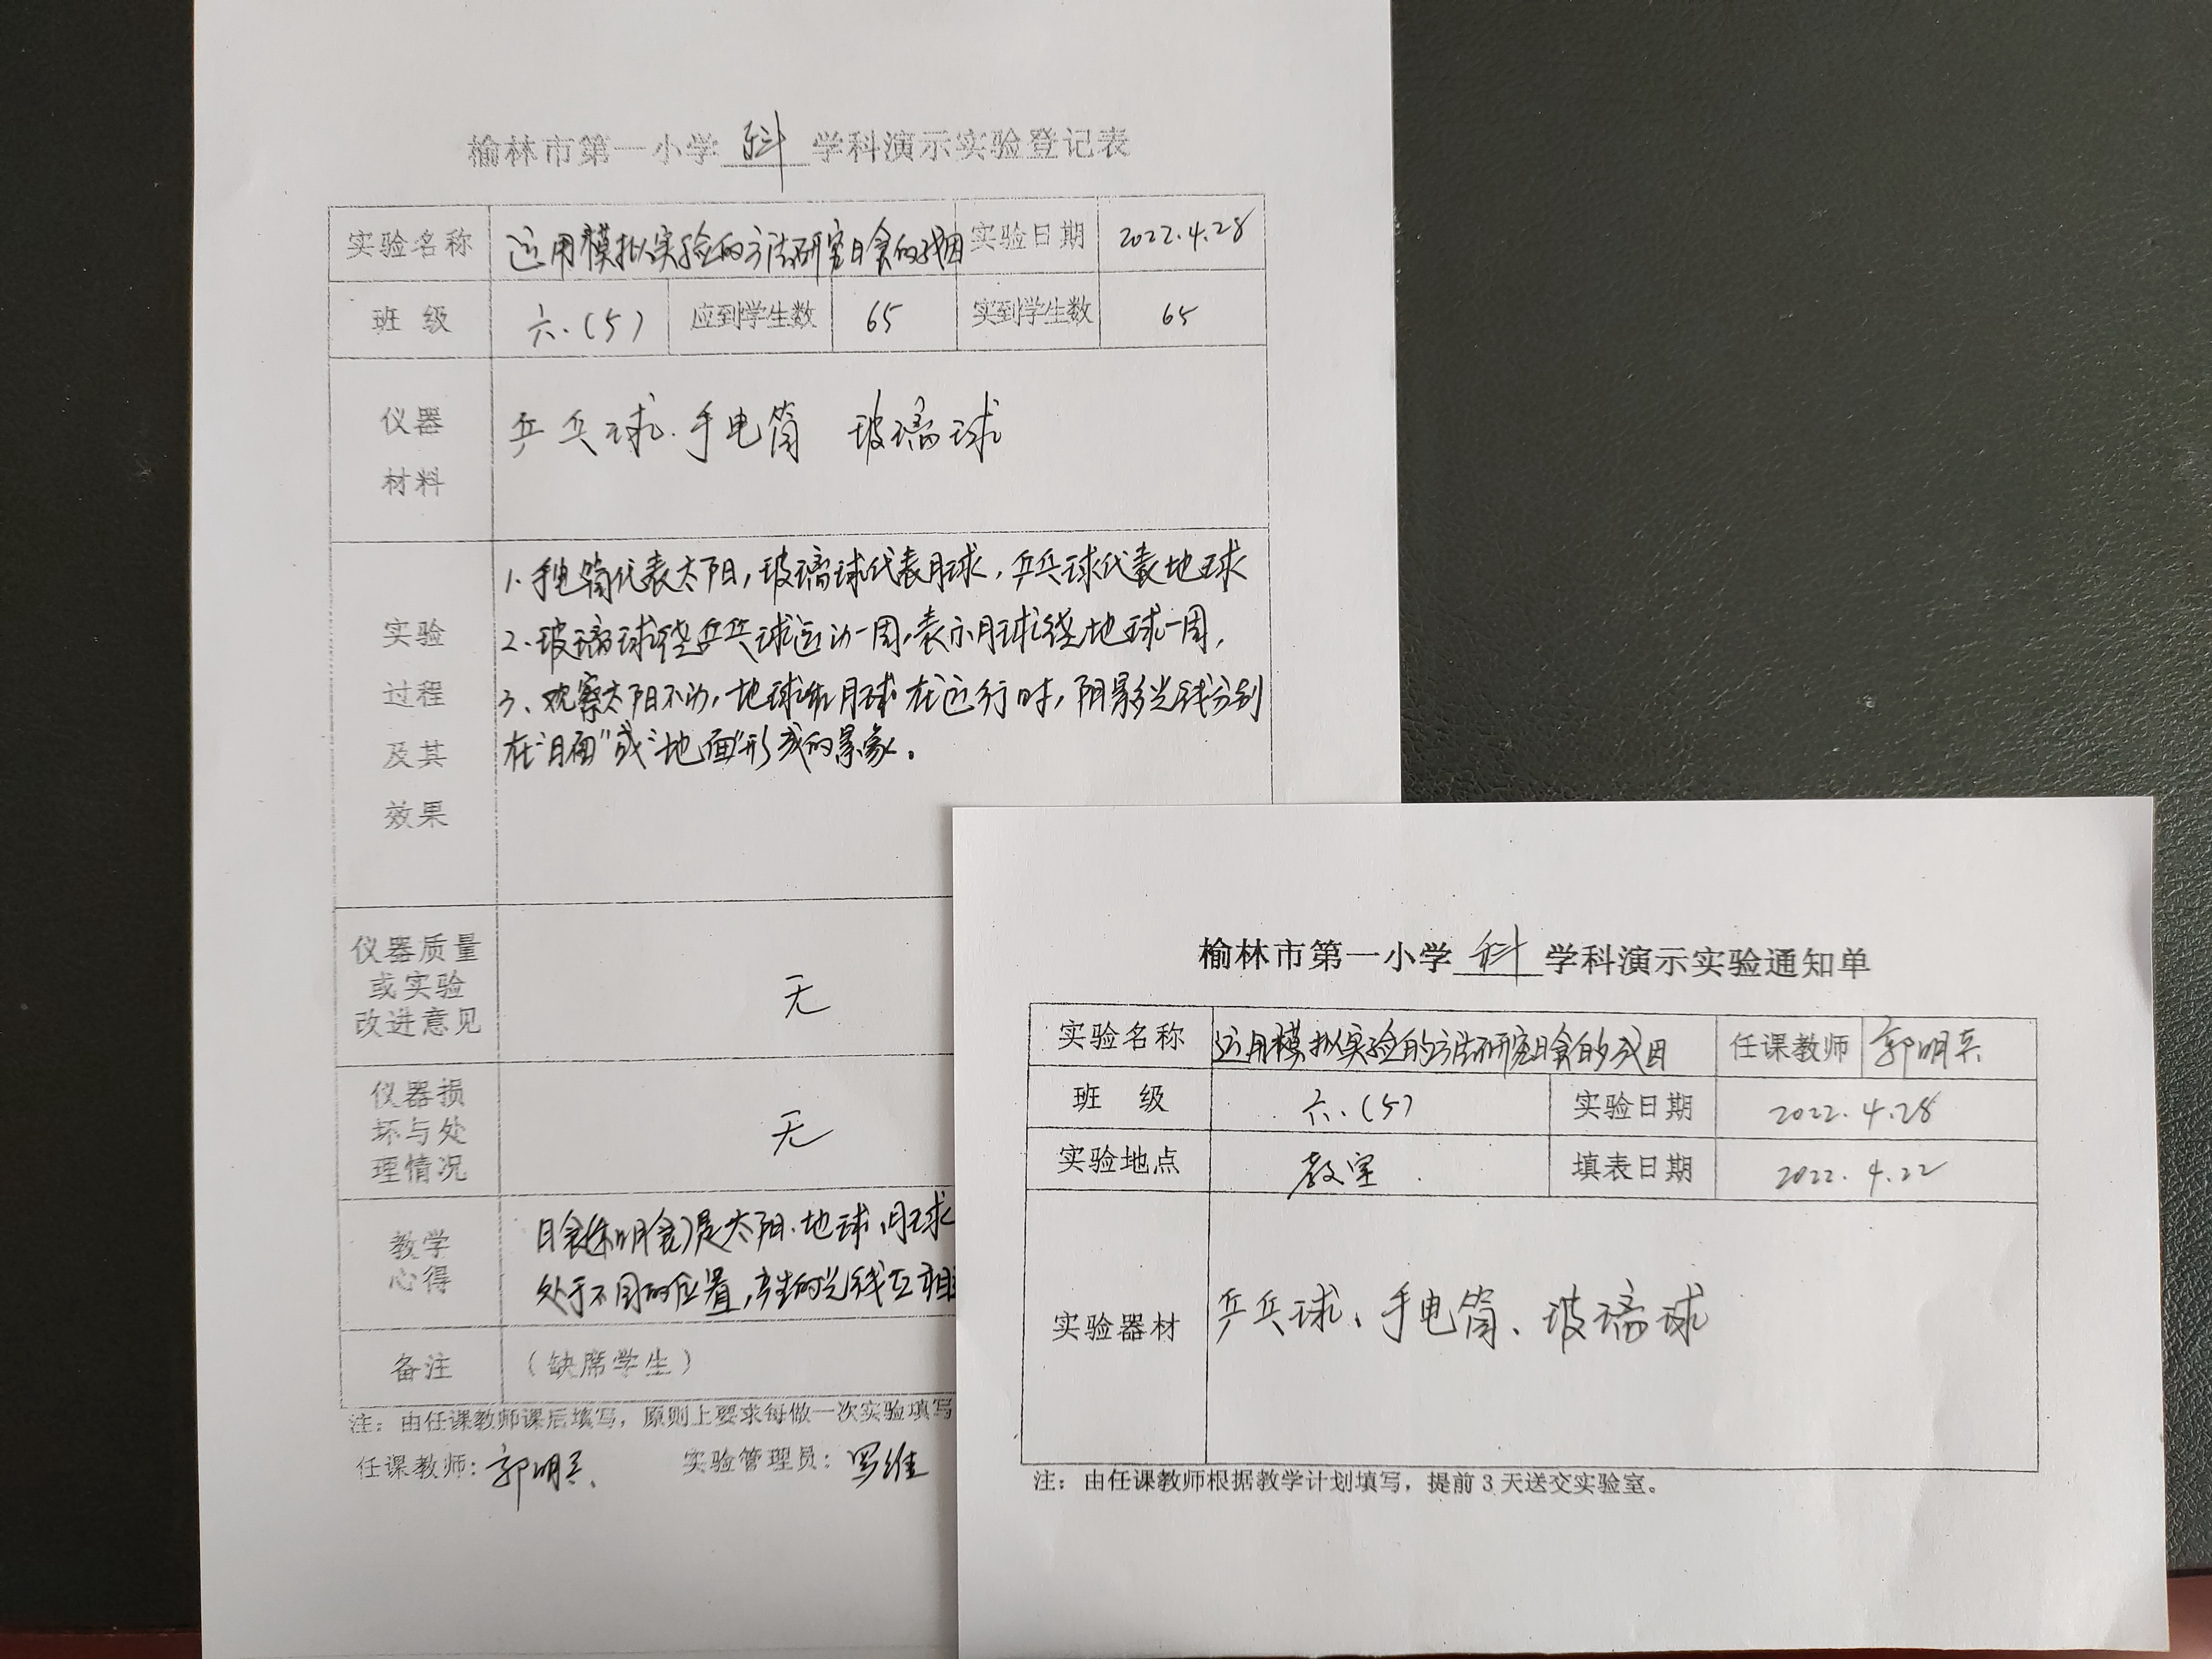 榆林市第一小学 科 学科演示实验登记表
实验名称 运用模拟实验的方法研究日食的成因 实验日期 2022.4.28
班 级 六.(5) 应到学生数 65 实到学生数 65
仪器
材料
乒乓球.手电筒 玻璃球
实验
过程
及其
效果
1.手电筒代表太阳,玻璃球代表月球,乒乓球代表地球
2.玻璃球绕乒乓球运动一周,表示月球绕地球一周,
3、观察太阳不动,地球和月球在运行时,阴影光线分别
在“月面”或“地面”形成的景象。
仪器质量
或实验
改进意见
无
仪器损
坏与处
理情况
无
教学
心得
日食(和月食)是太阳.地球.月球
处于不同的位置,产生的光线互相
备注 (缺席学生)
注:由任课教师课后填写,原则上要求每做一次实验填写
任课教师:郭明 实验管理员:罗维
榆林市第一小学 科 学科演示实验通知单
实验名称 运用模拟实验的方法研究日食的成因 任课教师 郭明
班 级 六.(5) 实验日期 2022.4.28
实验地点 教室. 填表日期 2022.4.22
实验器材 乒乓球、手电筒、玻璃球
注:由任课教师根据教学计划填写,提前3天送交实验室。